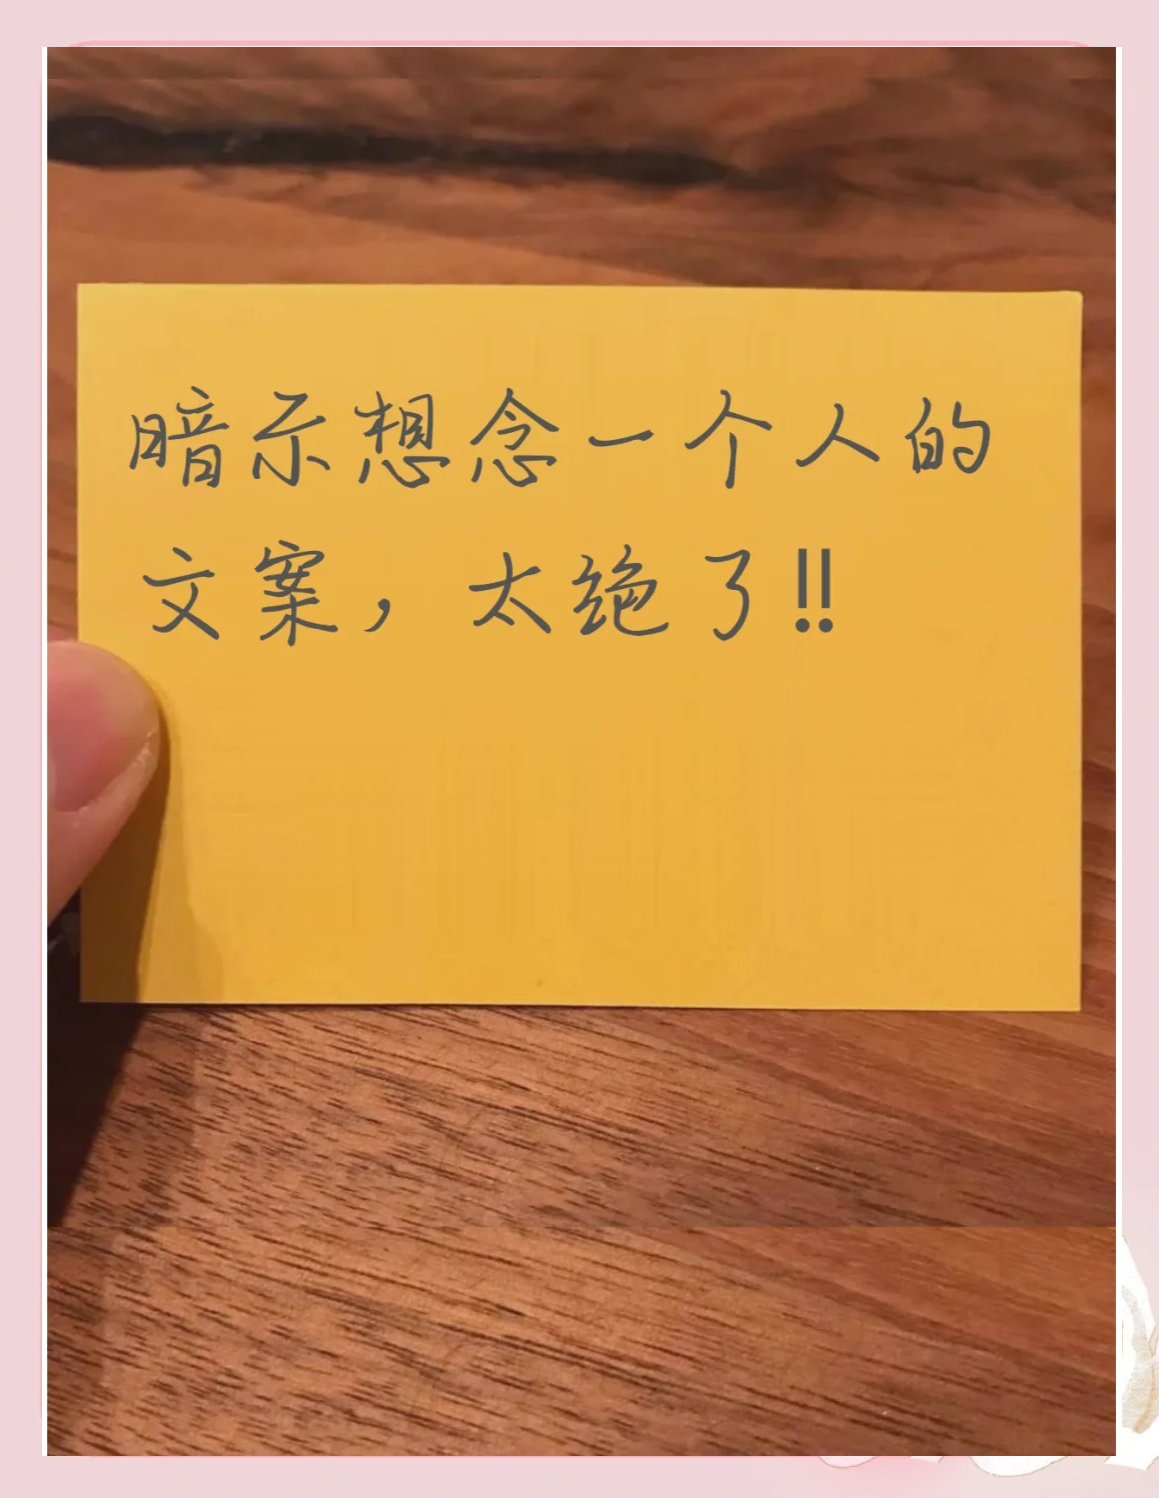 暗示想念一个人的
文案，太绝了!!